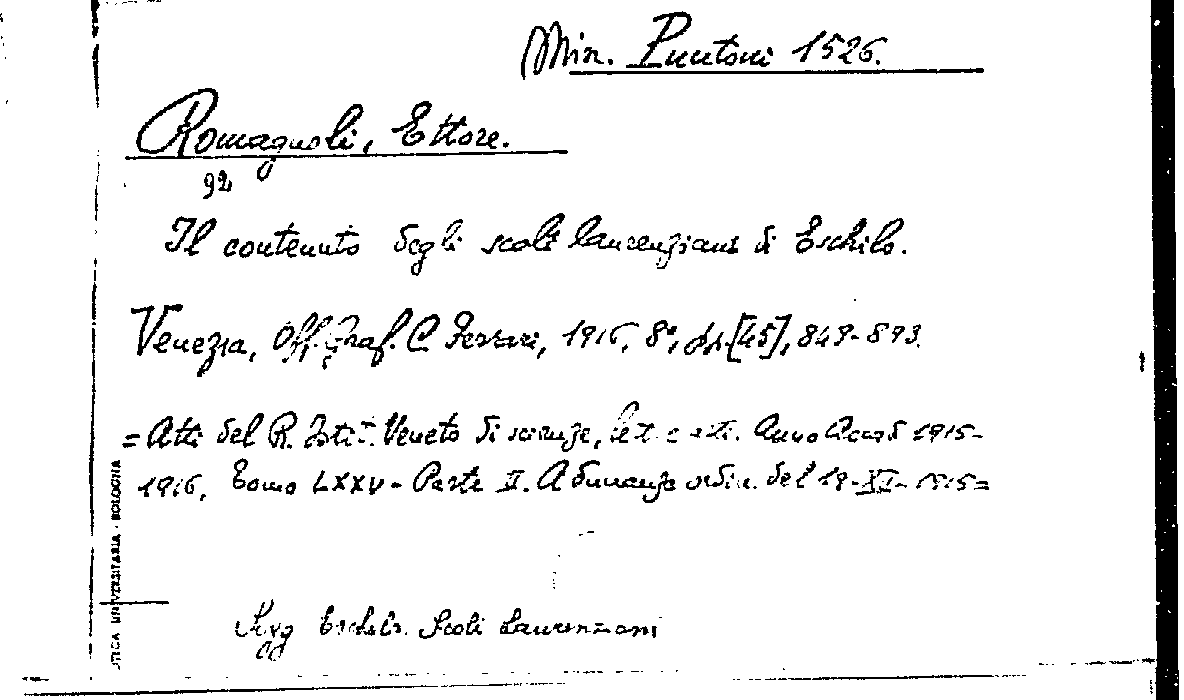 Min. Puntoni 1526.
Romagnoli, Ettore.
92
Il contenuto degli scoli laurenziani di Eschilo.
Venezia, Off. Graf. C. Ferrari, 1916, 8°, pp. [45], 849-893.
= Atti del R. Istit. Veneto di scienze, lett. e arti. Anno Accad. 1915-
1916, Tomo LXXV - Parte II. Adunanza ordin. del 18-XI-1915=
Eschilo. Scoli Laurenziani
UNIVERSITARIA - BOLOGNA